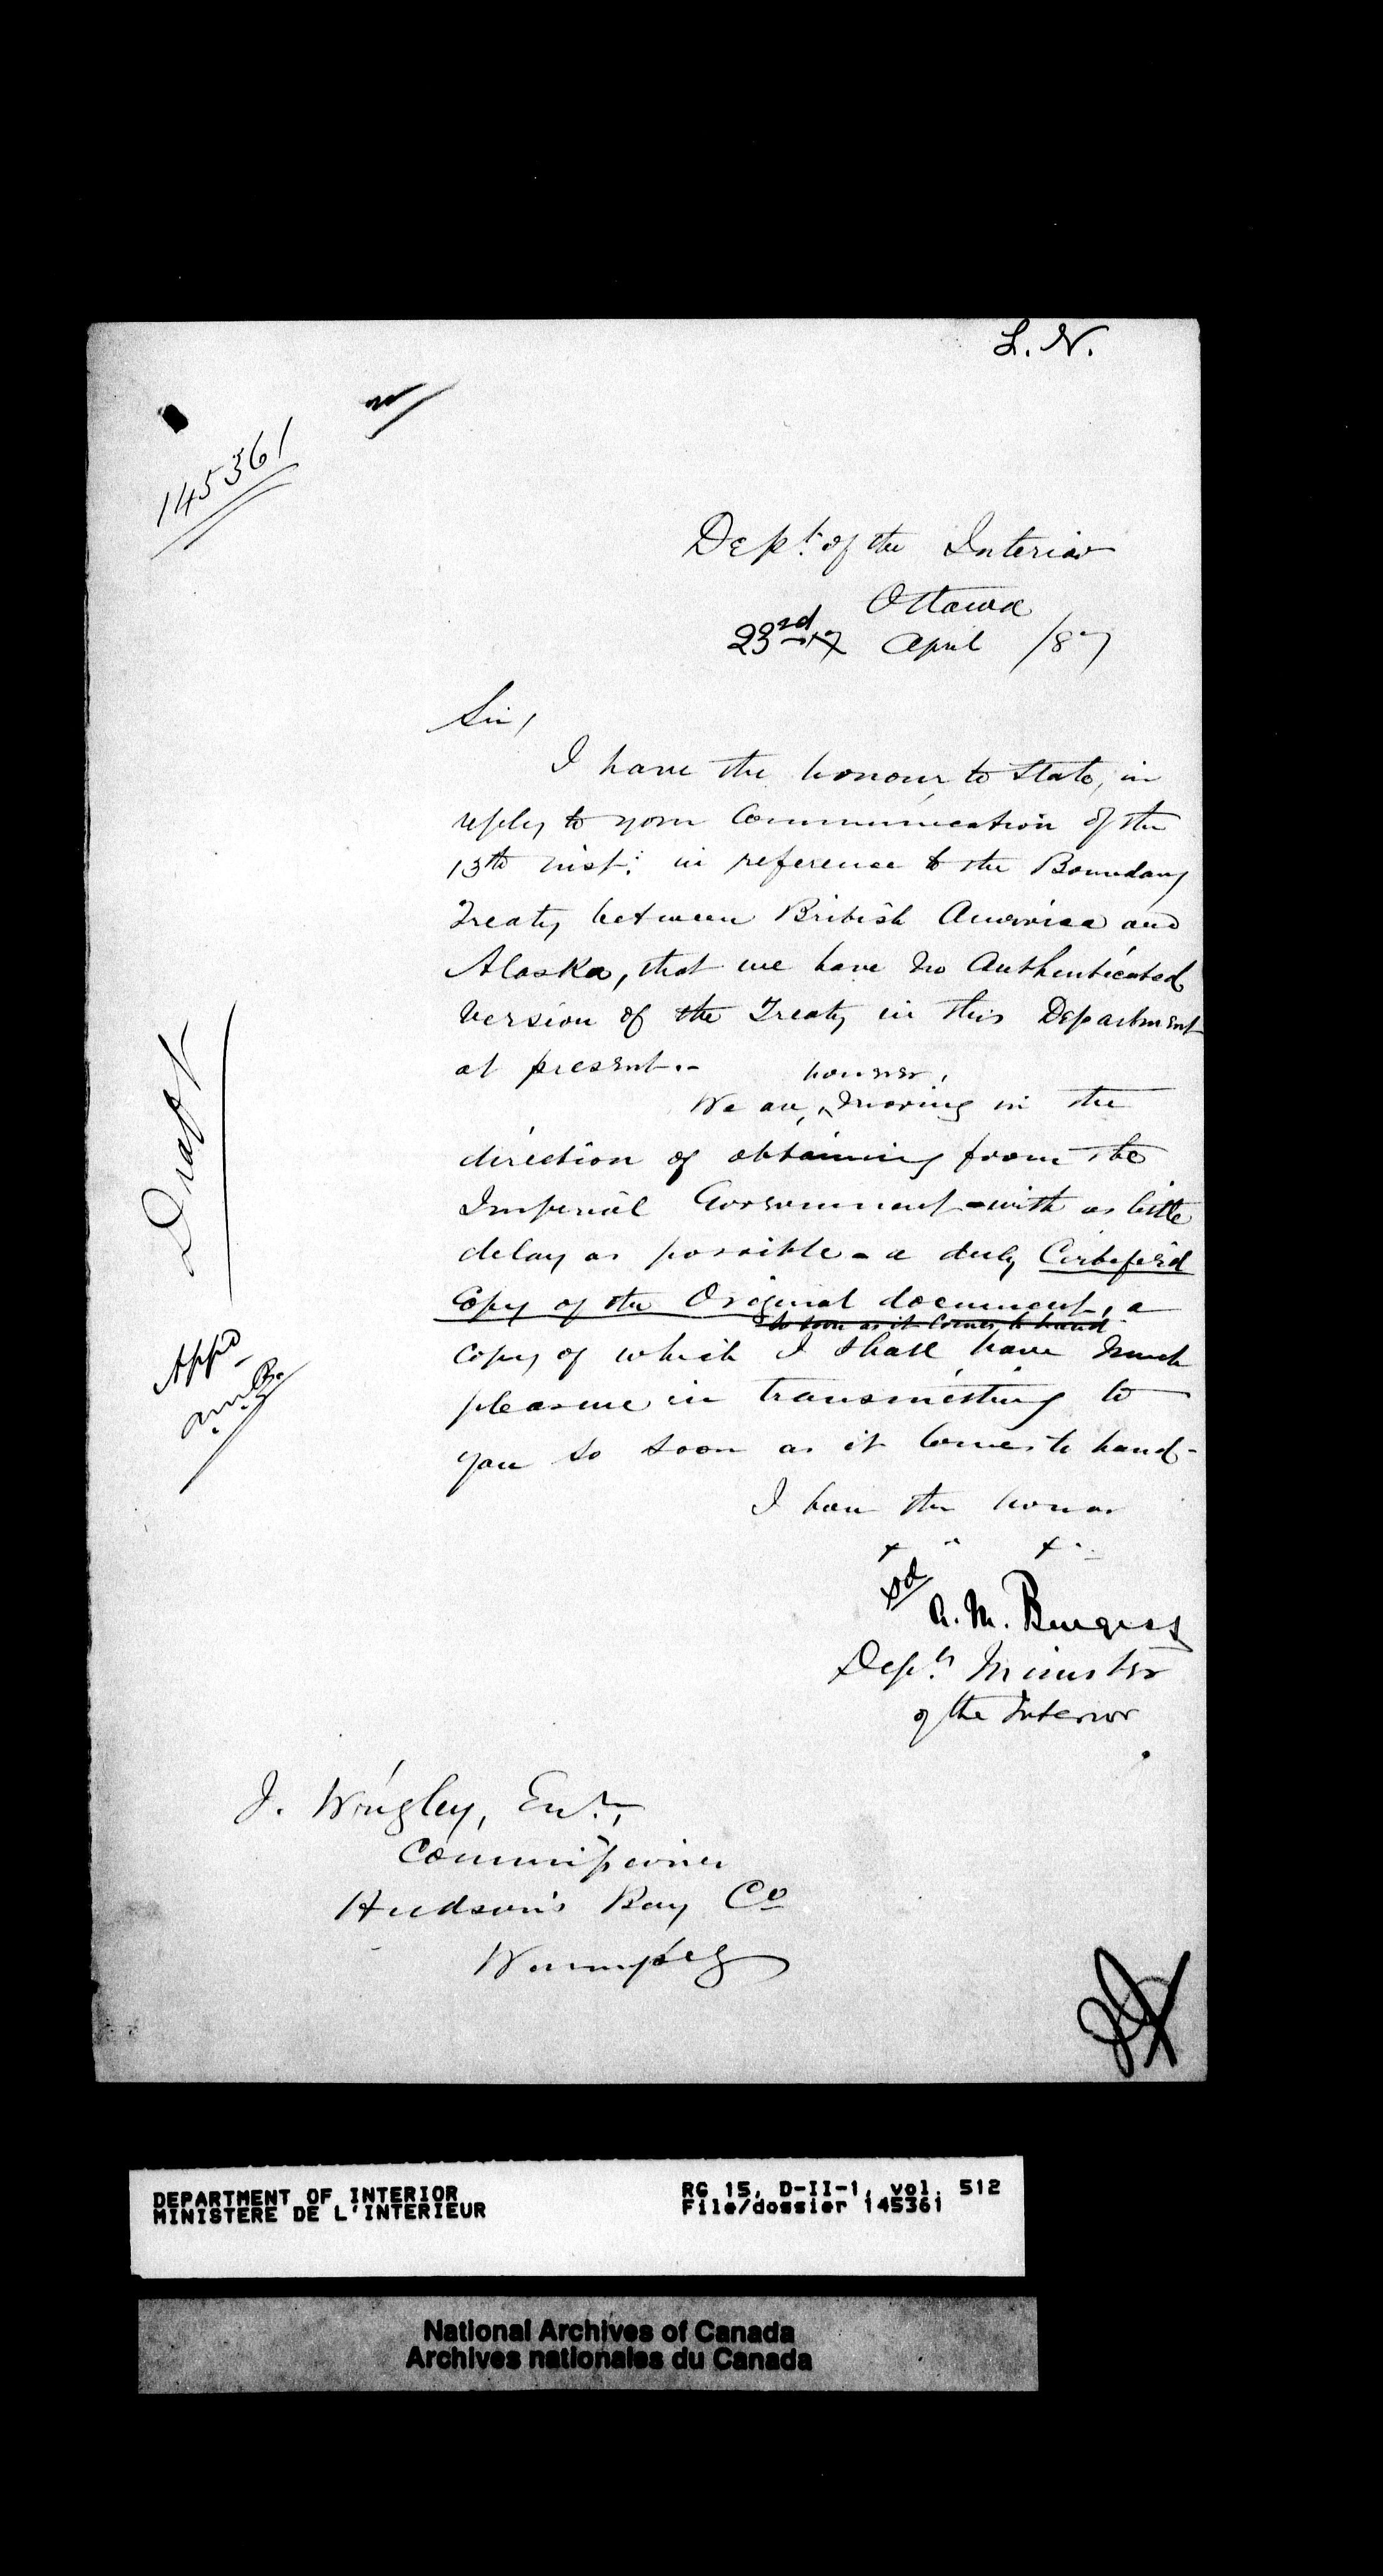 L. N.
145361
Dept. of the Interior
Ottawa
23rd April /87
Sir,
I have the honour to state, in
reply to your Communication of the
13th inst: in reference to the Boundary
Treaty between British America and
Alaska, that we have no Authenticated
Version of the Treaty in this Department
at present.-
however,
We are, ^ moving in the
direction of obtaining from the
Imperial Government - with as little
delay as possible - a duly Certified
Copy of the Original document, a
so soon as it comes to hand
copy of which I shall have much
pleasure in transmitting to
you so soon as it comes to hand-
I have the honor
sd
A. M. Burgess
Depy. Minister
of the Interior
Draft
Appd
J. Wrigley, Esqr.,
Commissioner
Hudson's Bay Co
Winnipeg
DEPARTMENT OF INTERIOR RG 15, D-II-1, vol. 512
MINISTERE DE L'INTERIEUR File/dossier 145361
National Archives of Canada
Archives nationales du Canada